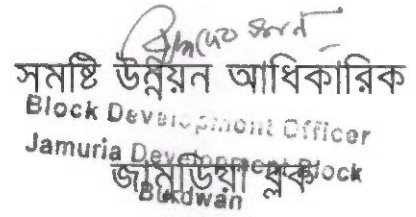 সমষ্টি উন্নয়ন আধিকারিক
Block Development Officer
Jamuria Development Block
জামুড়িয়া ব্লক
Burdwan